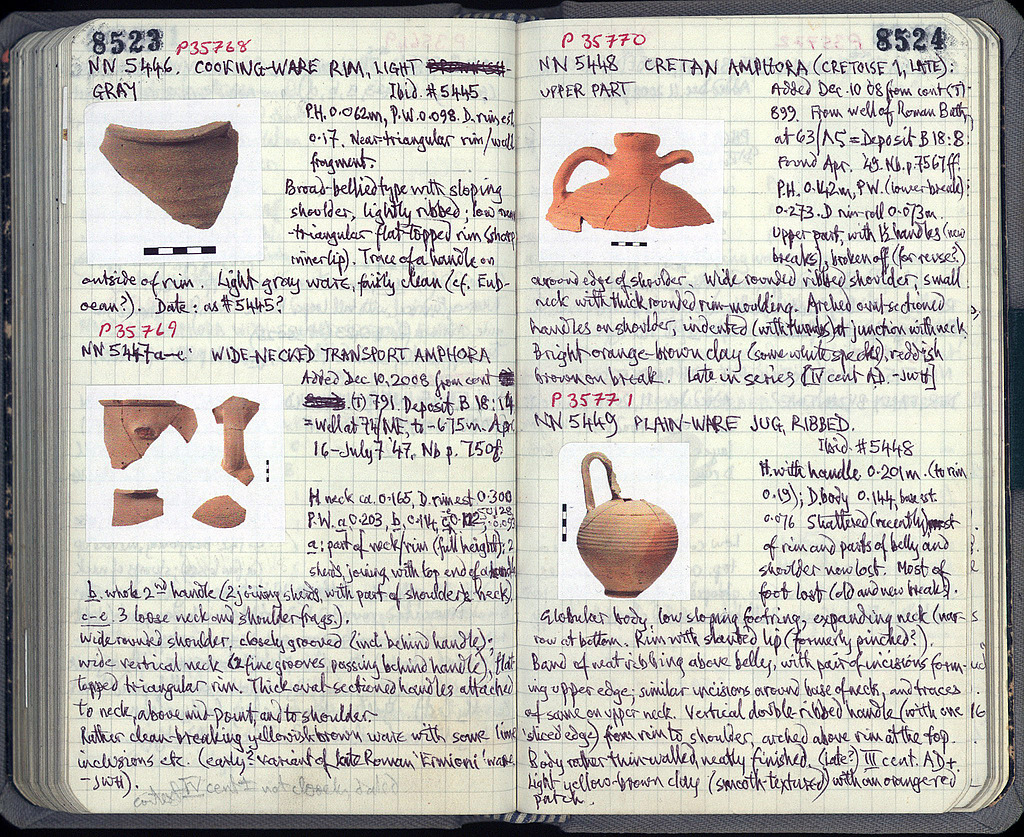 8523
P35768
NN 5446. COOKING-WARE RIM, LIGHT
GRAY Ibid. #5445.
P.H. 0.062m, P.W. 0.098. D. rim est
0.17. Near-triangular rim/wall
fragment.
Broad-bellied type with sloping
shoulder, lightly ribbed; low near
-triangular flat-topped rim (sharp
inner lip). Trace of a handle on
outside of rim. Light gray ware, fairly clean (cf. Eub-
oean?). Date: as #5445?
P35769
NN 5447a-e: WIDE-NECKED TRANSPORT AMPHORA
Added Dec 10, 2008 from cont
(T) 791. Deposit B 18:14
= Well at 74/ΝΕ, to -6.75m. Apr
16-July 7 '47, Nb p. 750ff.
H neck ca. 0.165, D. rim est 0.300
P.W. a 0.203, b. 0.14,
a: part of neck/rim (full height); 2
sherds joining with top end of a handle
b. whole 2nd handle (2 joining sherds, with part of shoulder & neck).
c-e. 3 loose neck and shoulder frags.).
Wide rounded shoulder, closely grooved (incl. behind handle);
wide vertical neck (2 fine grooves, passing behind handle), flat
topped triangular rim. Thick oval-sectioned handles attached
to neck, above mid-point, and to shoulder.
Rather clean-breaking yellowish brown ware with some lime
inclusions etc. (early? variant of late Roman 'Ermioni' ware
-JWH).
context IV cent ± not closely dated
8524
P 35770
NN 5448 CRETAN AMPHORA (CRETOISE 1, LATE):
UPPER PART Added Dec. 10 08 from cont (T)
899. From well of Roman Bath,
at 63/ΛΣ = Deposit B 18:8.
Found Apr. '49. Nb. p. 7567ff.
P.H. 0.142m, P.W. (lower break):
0.273. D rim-roll 0.073m.
Upper part, with 1½ handles (new
breaks), broken off (for reuse?)
around edge of shoulder. Wide rounded ribbed shoulder, small
neck with thick rounded rim-moulding. Arched oval-sectioned
handles on shoulder, indented (with thumbs) at junction with neck.
Bright orange-brown clay (some white specks), reddish
brown on break. Late in series [IV cent AD. -JWH]
P35771
NN 5449 PLAIN-WARE JUG, RIBBED.
Ibid. #5448
H. with handle 0.201m. (to rim
0.19); D. body 0.144, base est.
0.076 Shattered (recently), most
of rim and parts of belly and
shoulder now lost. Most of
foot lost (old and new breaks).
Globular body, low sloping footring, expanding neck (nar-
row at bottom. Rim with slanted lip (formerly pinched?).
Band of neat ribbing above belly, with pair of incisions form-
ing upper edge; similar incisions around base of neck, and traces
of same on upper neck. Vertical double-ribbed handle (with one
sliced edge) from rim to shoulder, arched above rim at the top.
Body rather thin-walled, neatly finished. (Late?) III cent. AD+.
Light yellow-brown clay (smooth textured) with an orange-red
patch.